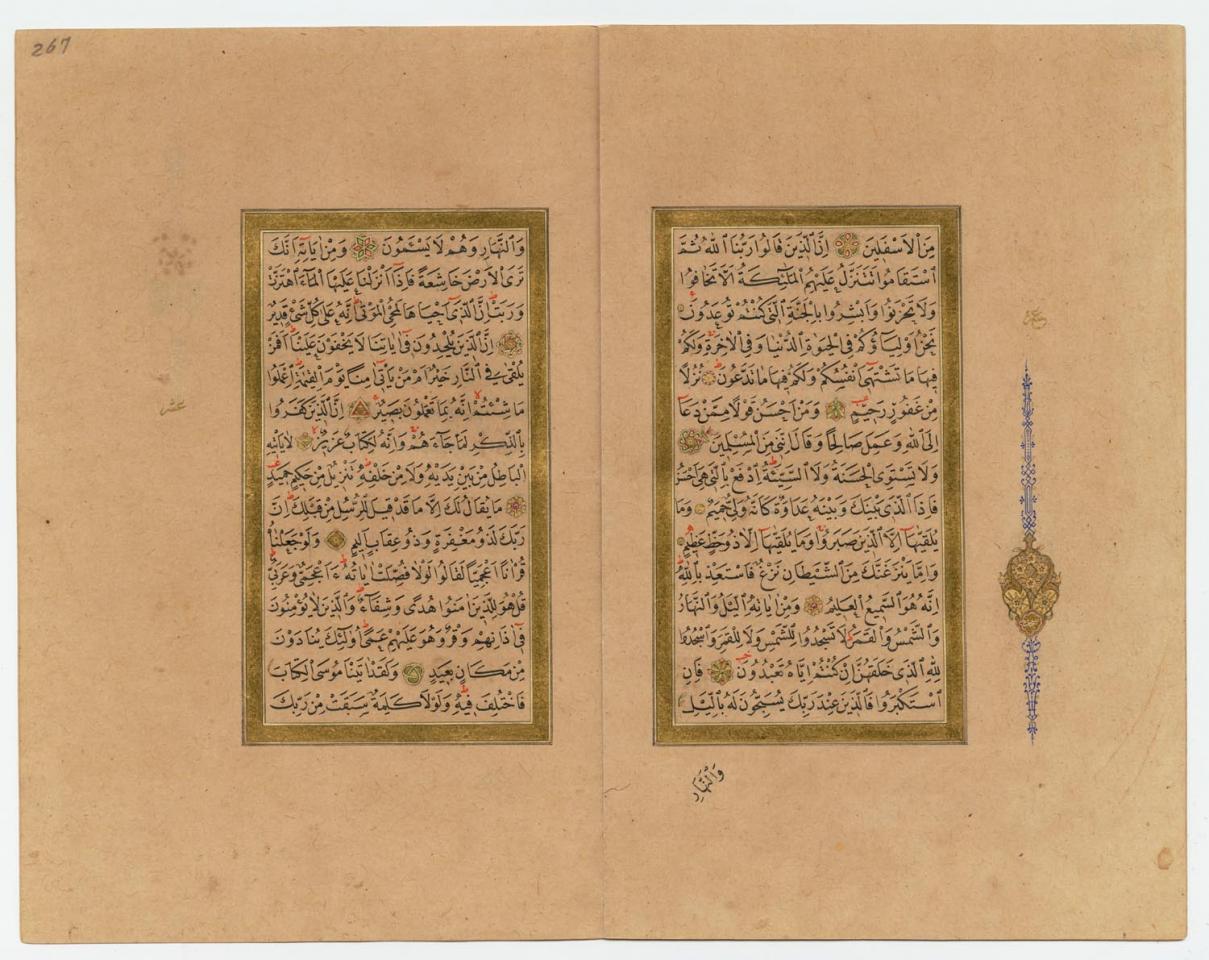 مِنَ الْاَسْفَلِينَ اِنَّ الَّذِينَ قَالُوا رَبُّنَا اللّٰهُ ثُمَّ
اسْتَقَامُوا تَتَنَزَّلُ عَلَيْهِمُ الْمَلٰٓئِكَةُ اَلَّا تَخَافُوا
وَلَا تَحْزَنُوا وَاَبْشِرُوا بِالْجَنَّةِ الَّتِى كُنْتُمْ تُوعَدُونَ
نَحْنُ اَوْلِيَاؤُكُمْ فِى الْحَيٰوةِ الدُّنْيَا وَفِى الْاٰخِرَةِ وَلَكُمْ
فِيهَا مَا تَشْتَهِىٓ اَنْفُسُكُمْ وَلَكُمْ فِيهَا مَا تَدَّعُونَ نُزُلًا
مِنْ غَفُورٍ رَحِيمٍ وَمَنْ اَحْسَنُ قَوْلًا مِمَّنْ دَعَا
اِلَى اللّٰهِ وَعَمِلَ صَالِحًا وَقَالَ اِنَّنِى مِنَ الْمُسْلِمِينَ
وَلَا تَسْتَوِى الْحَسَنَةُ وَلَا السَّيِّئَةُ اِدْفَعْ بِالَّتِى هِىَ اَحْسَنُ
فَاِذَا الَّذِى بَيْنَكَ وَبَيْنَهُ عَدَاوَةٌ كَاَنَّهُ وَلِىٌّ حَمِيمٌ وَمَا
يُلَقّٰيهَٓا اِلَّا الَّذِينَ صَبَرُوا وَمَا يُلَقّٰيهَٓا اِلَّا ذُو حَظٍّ عَظِيمٍ
وَاِمَّا يَنْزَغَنَّكَ مِنَ الشَّيْطَانِ نَزْغٌ فَاسْتَعِذْ بِاللّٰهِ
اِنَّهُ هُوَ السَّمِيعُ الْعَلِيمُ وَمِنْ اٰيَاتِهِ الَّيْلُ وَالنَّهَارُ
وَالشَّمْسُ وَالْقَمَرُ لَا تَسْجُدُوا لِلشَّمْسِ وَلَا لِلْقَمَرِ وَاسْجُدُوا
لِلّٰهِ الَّذِى خَلَقَهُنَّ اِنْ كُنْتُمْ اِيَّاهُ تَعْبُدُونَ فَاِنِ
اسْتَكْبَرُوا فَالَّذِينَ عِنْدَ رَبِّكَ يُسَبِّحُونَ لَهُ بِالَّيْلِ
وَالنَّهَارِ
267
وَالنَّهَارِ وَهُمْ لَا يَسْئَمُونَ وَمِنْ اٰيَاتِهٓ اَنَّكَ
تَرَى الْاَرْضَ خَاشِعَةً فَاِذَٓا اَنْزَلْنَا عَلَيْهَا الْمَٓاءَ اهْتَزَّتْ
وَرَبَتْ اِنَّ الَّذِٓى اَحْيَاهَا لَمُحْىِ الْمَوْتٰى اِنَّهُ عَلٰى كُلِّ شَىْءٍ قَدِيرٌ
اِنَّ الَّذِينَ يُلْحِدُونَ فِٓى اٰيَاتِنَا لَا يَخْفَوْنَ عَلَيْنَا اَفَمَنْ
يُلْقٰى فِى النَّارِ خَيْرٌ اَمْ مَنْ يَأْتِٓى اٰمِنًا يَوْمَ الْقِيٰمَةِ اِعْمَلُوا
مَا شِئْتُمْ اِنَّهُ بِمَا تَعْمَلُونَ بَصِيرٌ اِنَّ الَّذِينَ كَفَرُوا
بِالذِّكْرِ لَمَّا جَٓاءَهُمْ وَاِنَّهُ لَكِتَابٌ عَزِيزٌ لَا يَأْتِيهِ
الْبَاطِلُ مِنْ بَيْنِ يَدَيْهِ وَلَا مِنْ خَلْفِهِ تَنْزِيلٌ مِنْ حَكِيمٍ حَمِيدٍ
مَا يُقَالُ لَكَ اِلَّا مَا قَدْ قِيلَ لِلرُّسُلِ مِنْ قَبْلِكَ اِنَّ
رَبَّكَ لَذُو مَغْفِرَةٍ وَذُو عِقَابٍ اَلِيمٍ وَلَوْ جَعَلْنَاهُ
قُرْاٰنًا اَعْجَمِيًّا لَقَالُوا لَوْلَا فُصِّلَتْ اٰيَاتُهُ ءَاَعْجَمِىٌّ وَعَرَبِىٌّ
قُلْ هُوَ لِلَّذِينَ اٰمَنُوا هُدًى وَشِفَٓاءٌ وَالَّذِينَ لَا يُؤْمِنُونَ
فِٓى اٰذَانِهِمْ وَقْرٌ وَهُوَ عَلَيْهِمْ عَمًى اُولٰٓئِكَ يُنَادَوْنَ
مِنْ مَكَانٍ بَعِيدٍ وَلَقَدْ اٰتَيْنَا مُوسَى الْكِتَابَ
فَاخْتُلِفَ فِيهِ وَلَوْلَا كَلِمَةٌ سَبَقَتْ مِنْ رَبِّكَ
عشر